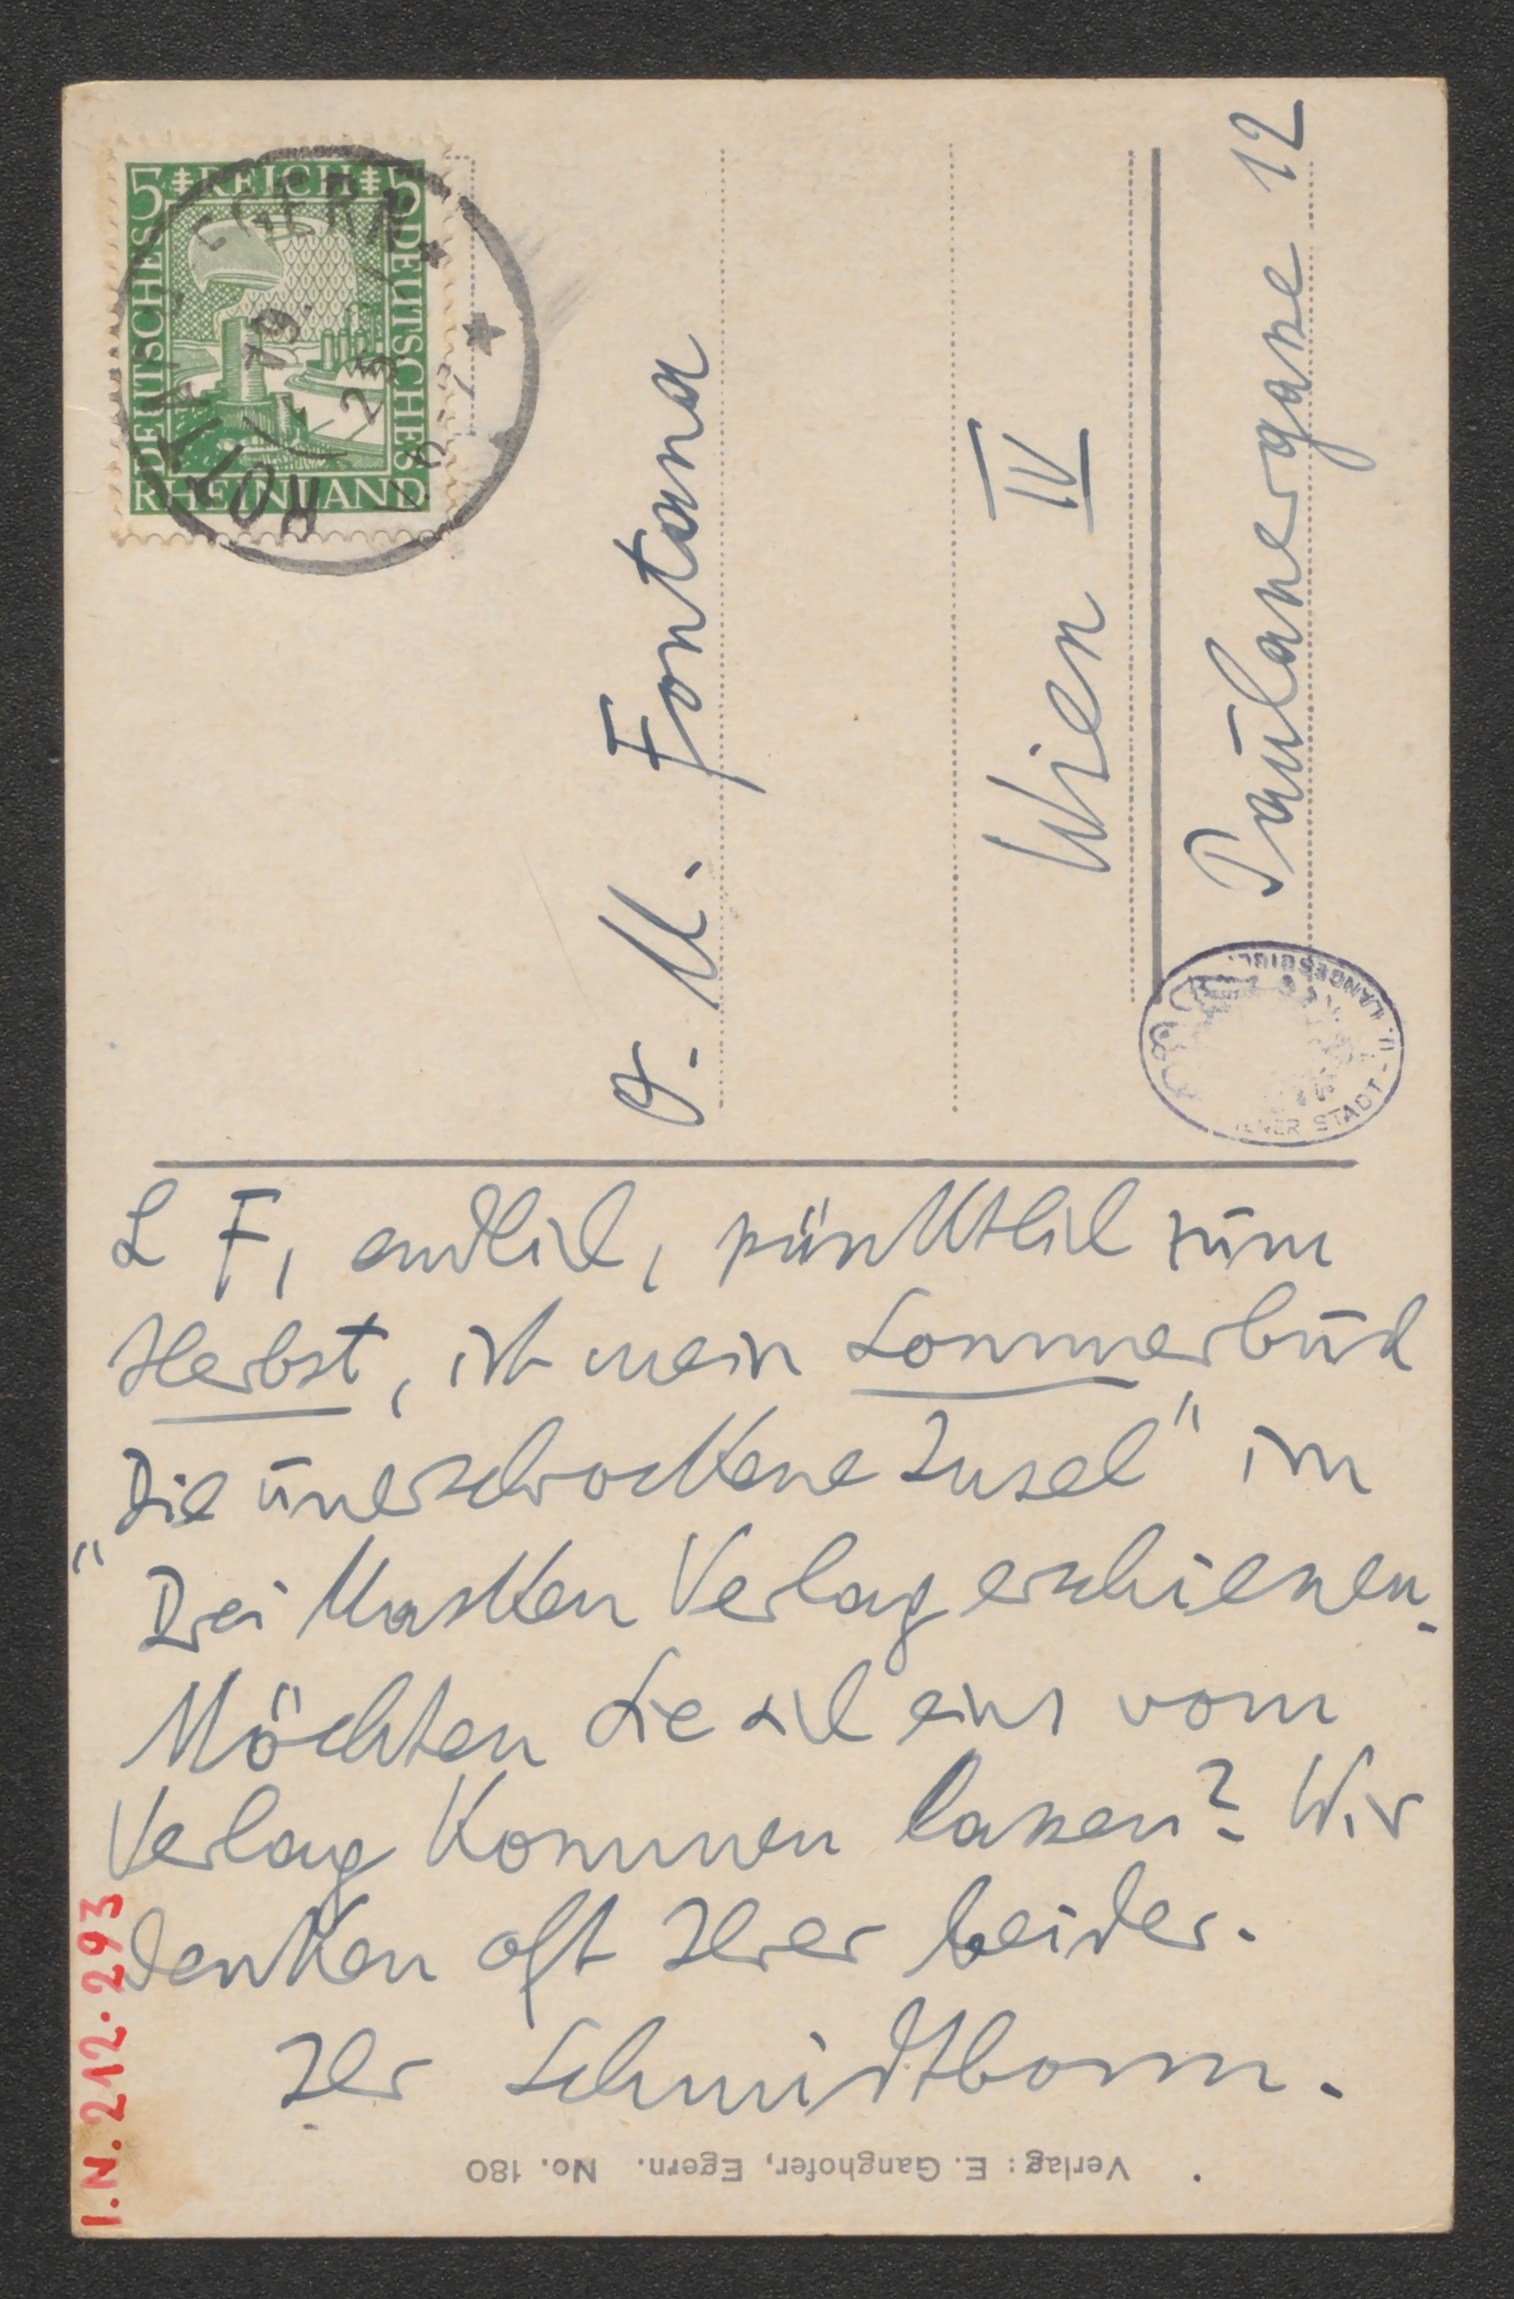 5 REICH 5
DEUTSCHES
DEUTSCHES
RHEINLAND
ROTTACH EGERN
19.
25
6-7
O. M. Fontana
Wien IV
Paulanergasse 12
WIENER STADT- U. LANDESBIBL.
L F, endlich, pünktlich zum
Herbst, ist mein Sommerbuch
"Die unerschrockene Insel" im
Drei Masken Verlag erschienen.
Möchten Sie sich eins vom
Verlag kommen lassen? Wir
denken oft Ihrer beider.
Ihr Schmidtbonn.
Verlag: E. Ganghofer, Egern. No. 180
I.N. 212.293